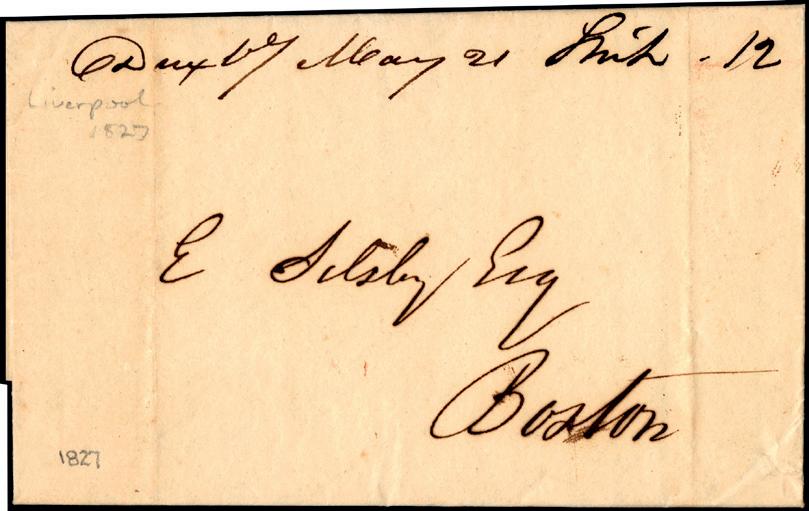 Duxby May 21 Ship - 12
Liverpool
1827
E Silsby Esq
Boston
1827